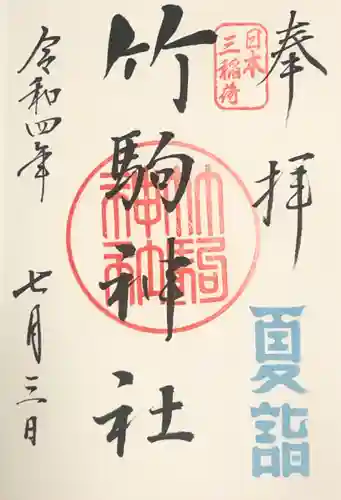 奉拝
夏詣
日本
三稲荷
竹駒神社
竹駒
神社
令和四年
七月三日